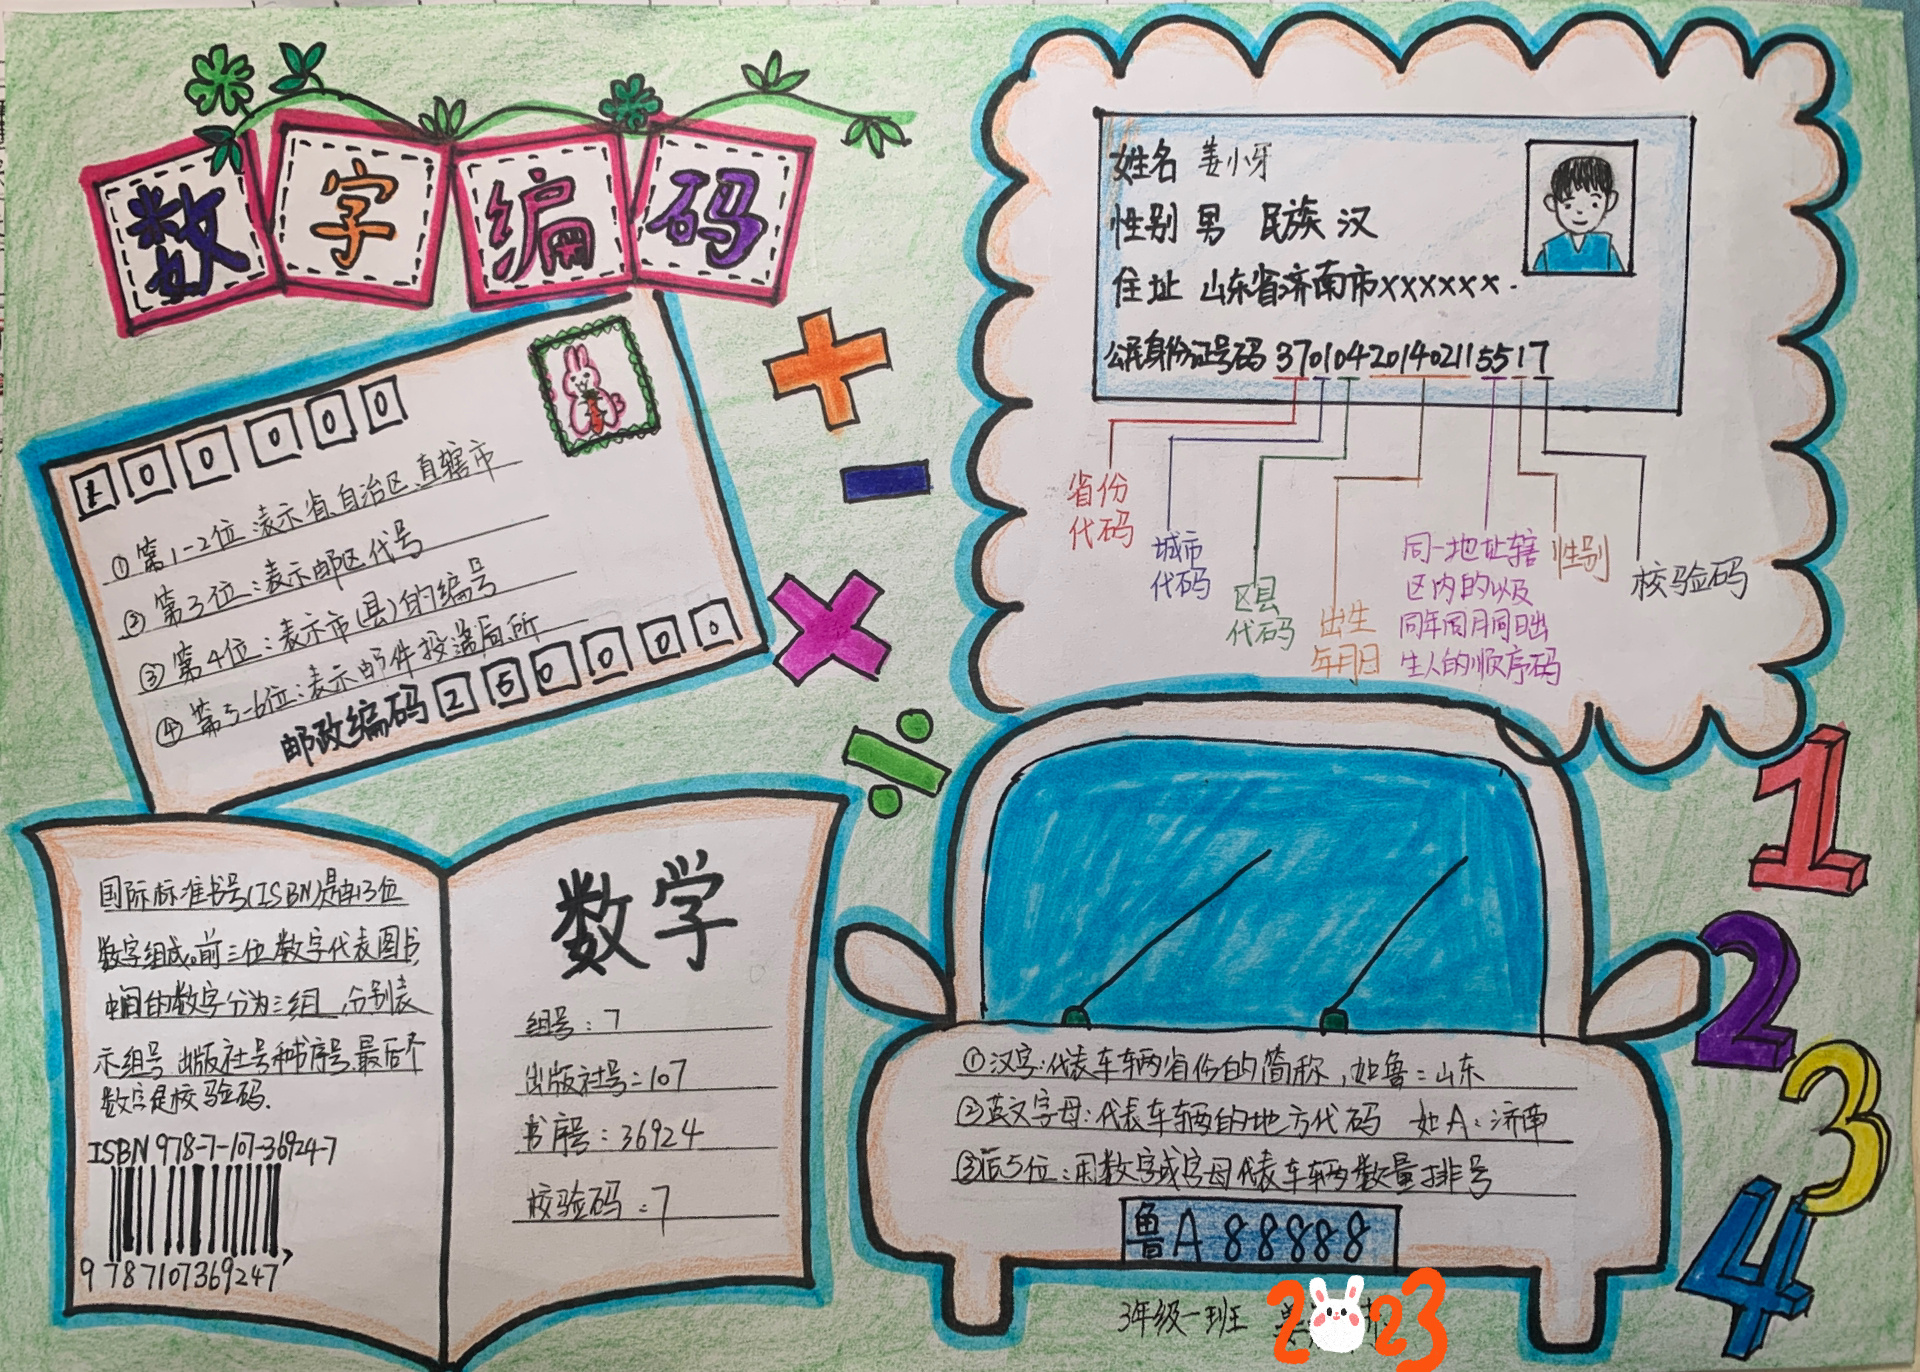 数字编码
100000
①第1-2位:表示省、自治区、直辖市
②第3位:表示邮区代号
③第4位:表示市(县)的编号
④第5-6位:表示邮件投递局、所
邮政编码 250000
姓名 姜小牙
性别 男 民族 汉
住址 山东省济南市××××××.
公民身份证号码 370104201402115517
省份
代码
城市
代码
区县
代码
出生
年月日
同一地址辖
区内的以及
同年同月同日出
生人的顺序码
性别
校验码
+
-
×
÷
国际标准书号(ISBN)是由13位
数字组成。前三位数字代表图书,
中间的数字分为三组,分别表
示组号 出版社号和书序号.最后个
数字是校验码.
ISBN 978-7-107-36924-7
9787107369247
数学
组号:7
出版社号:107
书序号:36924
校验码:7
①汉字:代表车辆省份的简称,如鲁:山东
②英文字母:代表车辆的地方代码 如A:济南
③后5位:用数字或字母代表车辆数量排号
鲁A 88888
1
2
3
4
3年级一班
2023